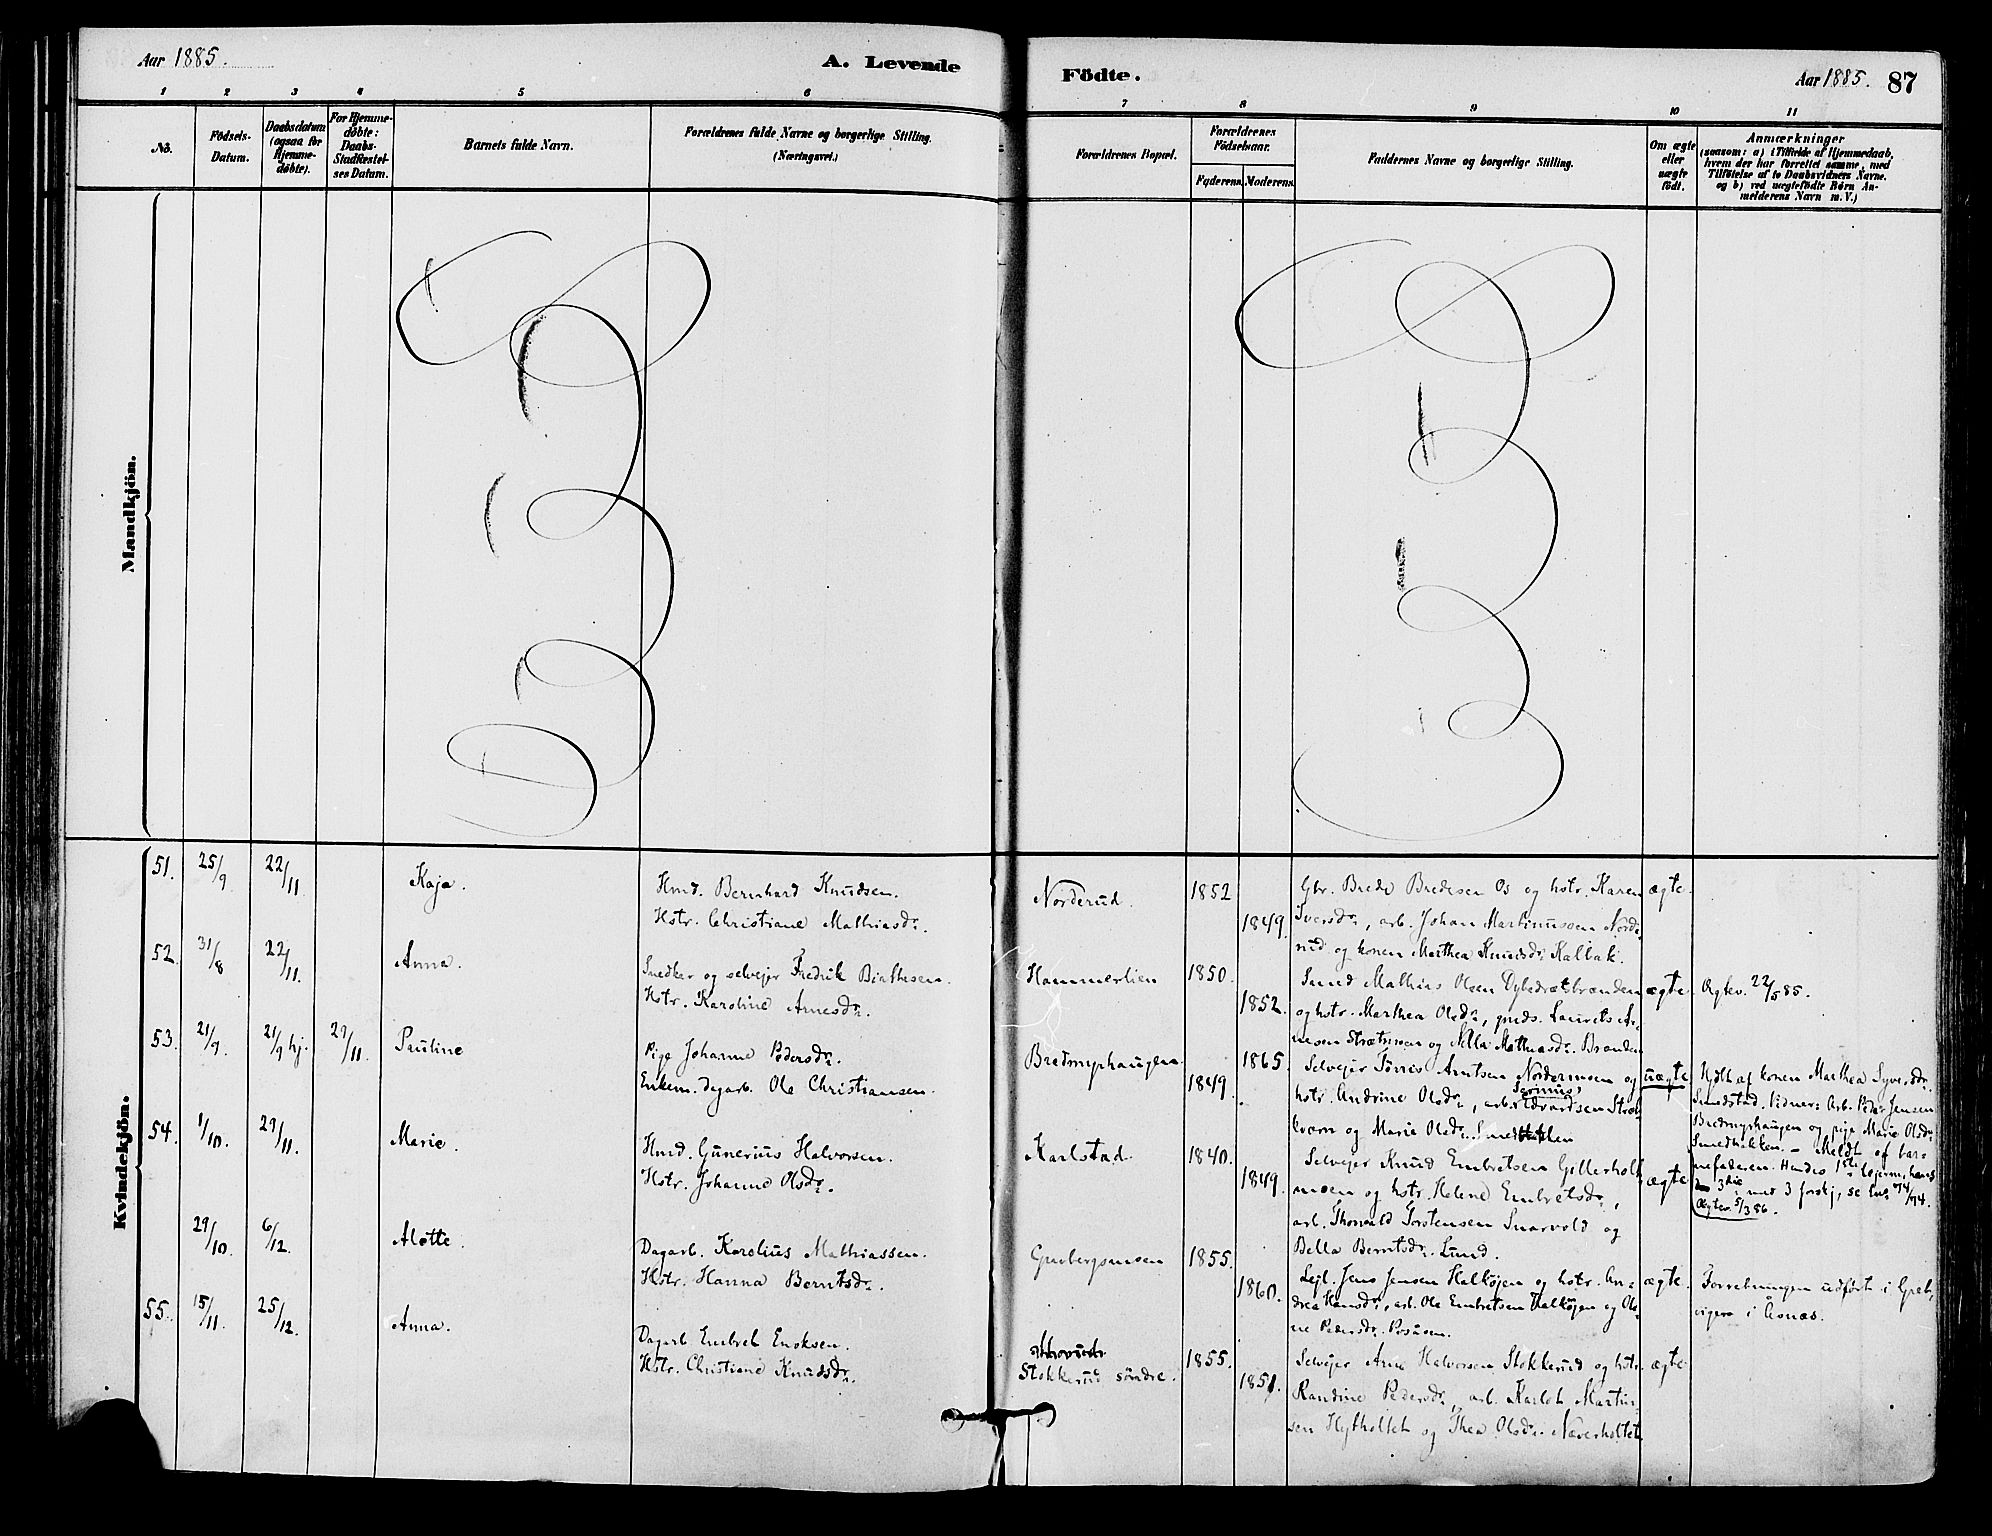 Aar 1885.
A. Levende
Födte.
Aar 1885. 87
1 2 3 4 5 6 7 8 9 10 11
No.
Födsels-
Datum.
Daabsdatum
(ogsaa for
Hjemme-
döbte).
For Hjemme-
döbte:
Daabs-
Stadfæstel-
ses Datum.
Barnets fulde Navn.
Forældrenes fulde Navne og borgerlige Stilling.
(Næringsvei.)
Forældrenes Bopæl.
Forældrenes
Födselsaar.
Faderens. Moderens.
Faddernes Navne og borgerlige Stilling.
Om ægte
eller
uægte
födt.
Anmærkninger
(saasom: a) i Tilfælde af Hjemmedaab,
hvem der har forrettet samme, med
Tilföielse af to Daabsvidners Navne.
og b) ved uægtefödte Börn An-
melderens Navn m. V.)
Mandkjön.
Kvindekjön.
51. 25/9 22/11 Kaja.
Hmd. Bernhard Knudsen.
Hstr. Christiane Mathiasdr.
Norderud.
1852
1849.
Gbr. Brede Bredesen Os og hstr. Karen
Iversdr., arb. Johan Martinussen Norde-
rud og konen Marthea Knudsdr. Kallak.
ægte.
52. 31/8 22/11. Anna.
Snedker og selvejer Fredrik Berthesen.
Hstr. Karoline Arnesdr.
Hammerlien
1850.
1852.
Mathias Olsen
og hstr. Marthea Olsdr., Laurits Ar-
nesen og Mathiasdr. Brænden
ægte
22/5 85.
53. 21/9. 21/9 hj. 29/11. Pauline
Pige Johanne Pedersdr.
Enkem. dagarb. Ole Christiansen.
Bredmyrhaugen
1865.
1849.
Selvejer Tönnes Arntsen Nordermoen og
hstr. Andrine Olsdr., arb. Edvardsen
og Marie Olsdr.
uægte
af konen Marthea Syversdr.
Smedstad. Vidner: Arb. Peder Jensen
Bredmyrhaugen og pige Marie Olsdr.
Smedbakken. – Meldt af bar-
nefaderen. Hendes 1ste lejerm., hans
3die, med 3 forskj., se
5/3 86.
54. 1/10. 29/11. Marie.
Hmd. Gunerius Halvorsen.
Hstr. Johanne Olsdr.
Karlstad
1840.
1849.
Selvejer Knud Embretsen Gillerholt-
moen og hstr. Helene Embretsdr.,
arb. Thorvald Torstensen Snarvold og
Bella Berntsdr. Lund.
ægte
29/10. 6/12. Alette.
Dagarb. Karolius Mathiassen.
Hstr. Hanna Berntsdr.
1855.
1860.
Lejl. Jens Jensen Kalköjen og hstr. An-
drea Hansdr., arb. Ole Embretsen Kalköjen og Ole-
ne Pedersdr.
ægte.
Forretningen udfört i
i Åsnæs.
55. 15/11. 25/12. Anna.
Dagarb. Embret Enoksen.
Hstr. Christiane Knudsdr.
Stokkerud söndre.
1855.
1851.
Selvejer Arne Halvorsen Stokkerud og hstr.
Randine Pedersdr., arb. Karlot Martin-
sen Hytholtet og Thea Olsdr. Næverholtet
ægte.